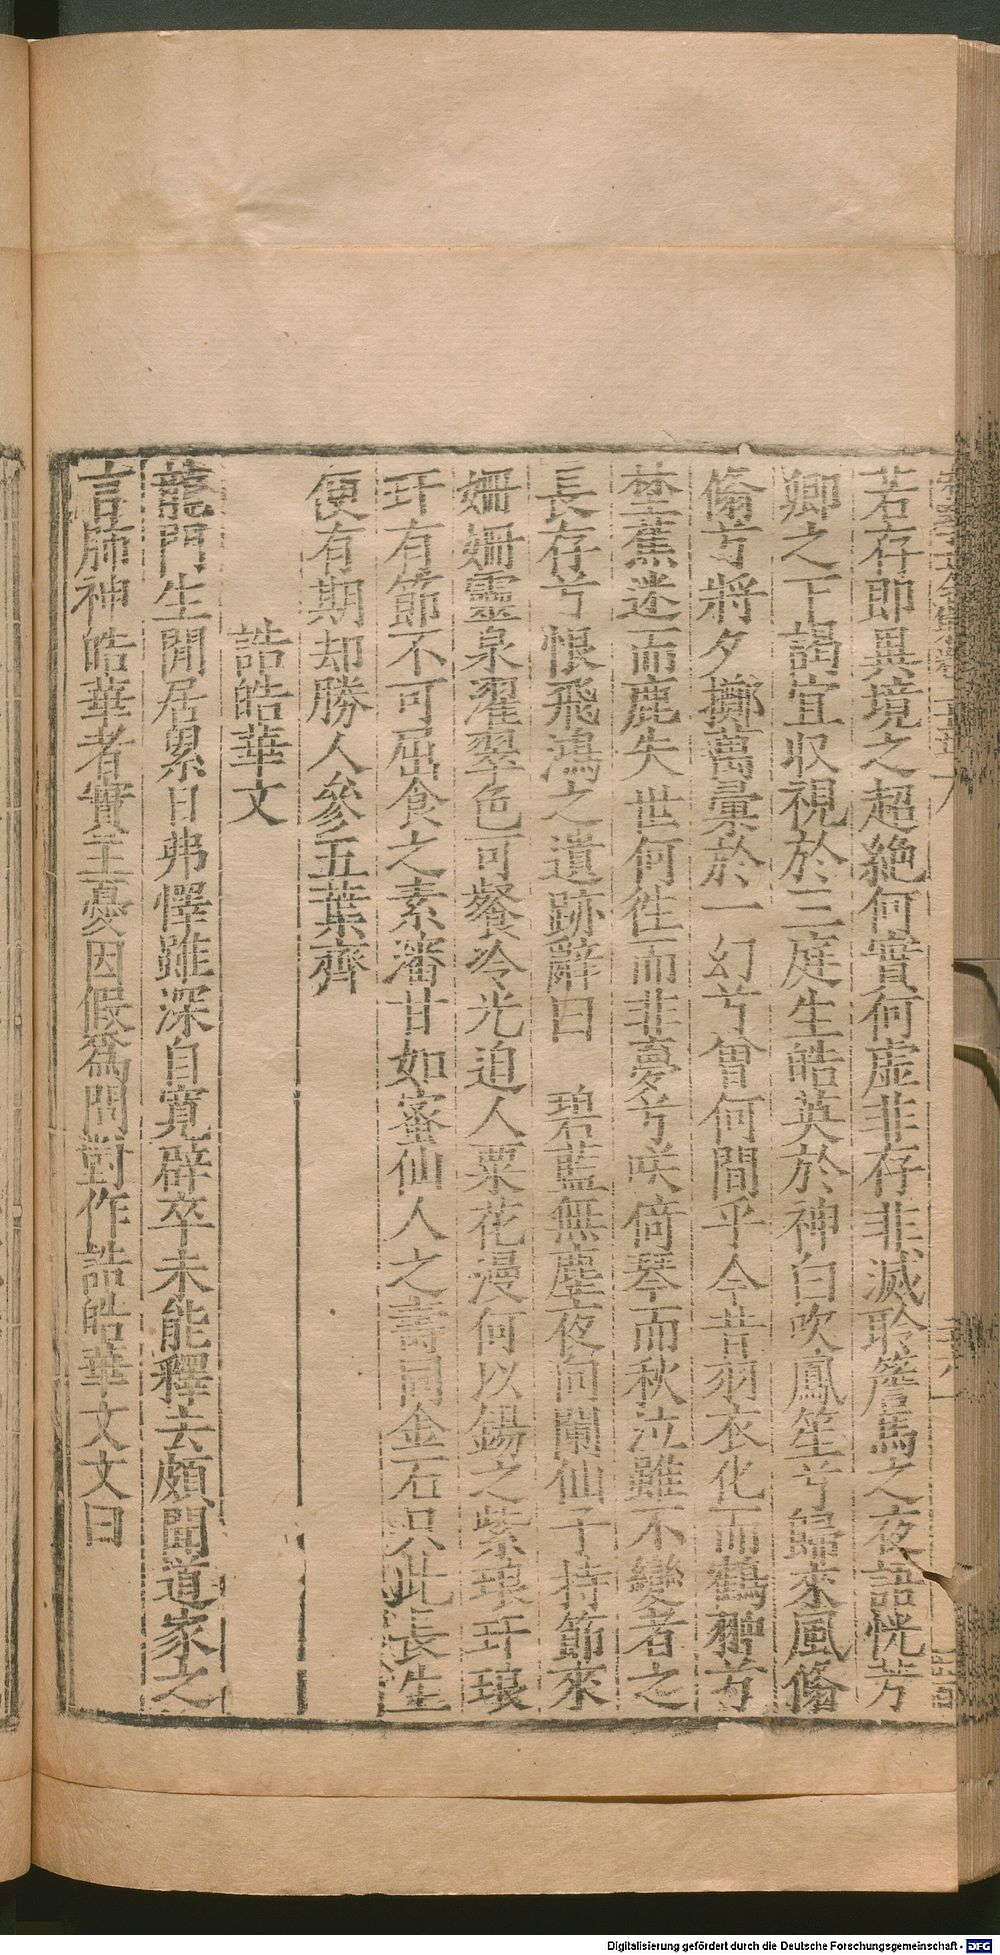 若存即異境之超絶何實何虛非存非滅聆簷馬之夜語恍芳
卿之下謁宜収視於三庭生皓英於神白吹鳳笙兮歸來風翛
翛兮將夕擲萬彚於一幻兮曾何間乎今昔羽衣化而鶴翀兮
堃蕉迷而鹿失世何徃而非夢兮咲倚琴而秋泣雖不變者之
長存兮恨飛鴻之遺跡辭曰 碧藍無塵夜向闌仙子持節來
姍姍靈泉濯翠色可餐冷光迫人粟花漫何以錫之紫琅玕琅
玕有節不可屈食之素瀋甘如蜜仙人之壽同金石只此長生
便有期却勝人參五葉齊
誥皓華文
龍門生閒居累日弗懌雖深自寛辟卒未能釋去頗聞道家之
言肺神皓華者實主憂因假為問對作誥皓華文文曰
Digitalisierung gefördert durch die Deutsche Forschungsgemeinschaft - DFG